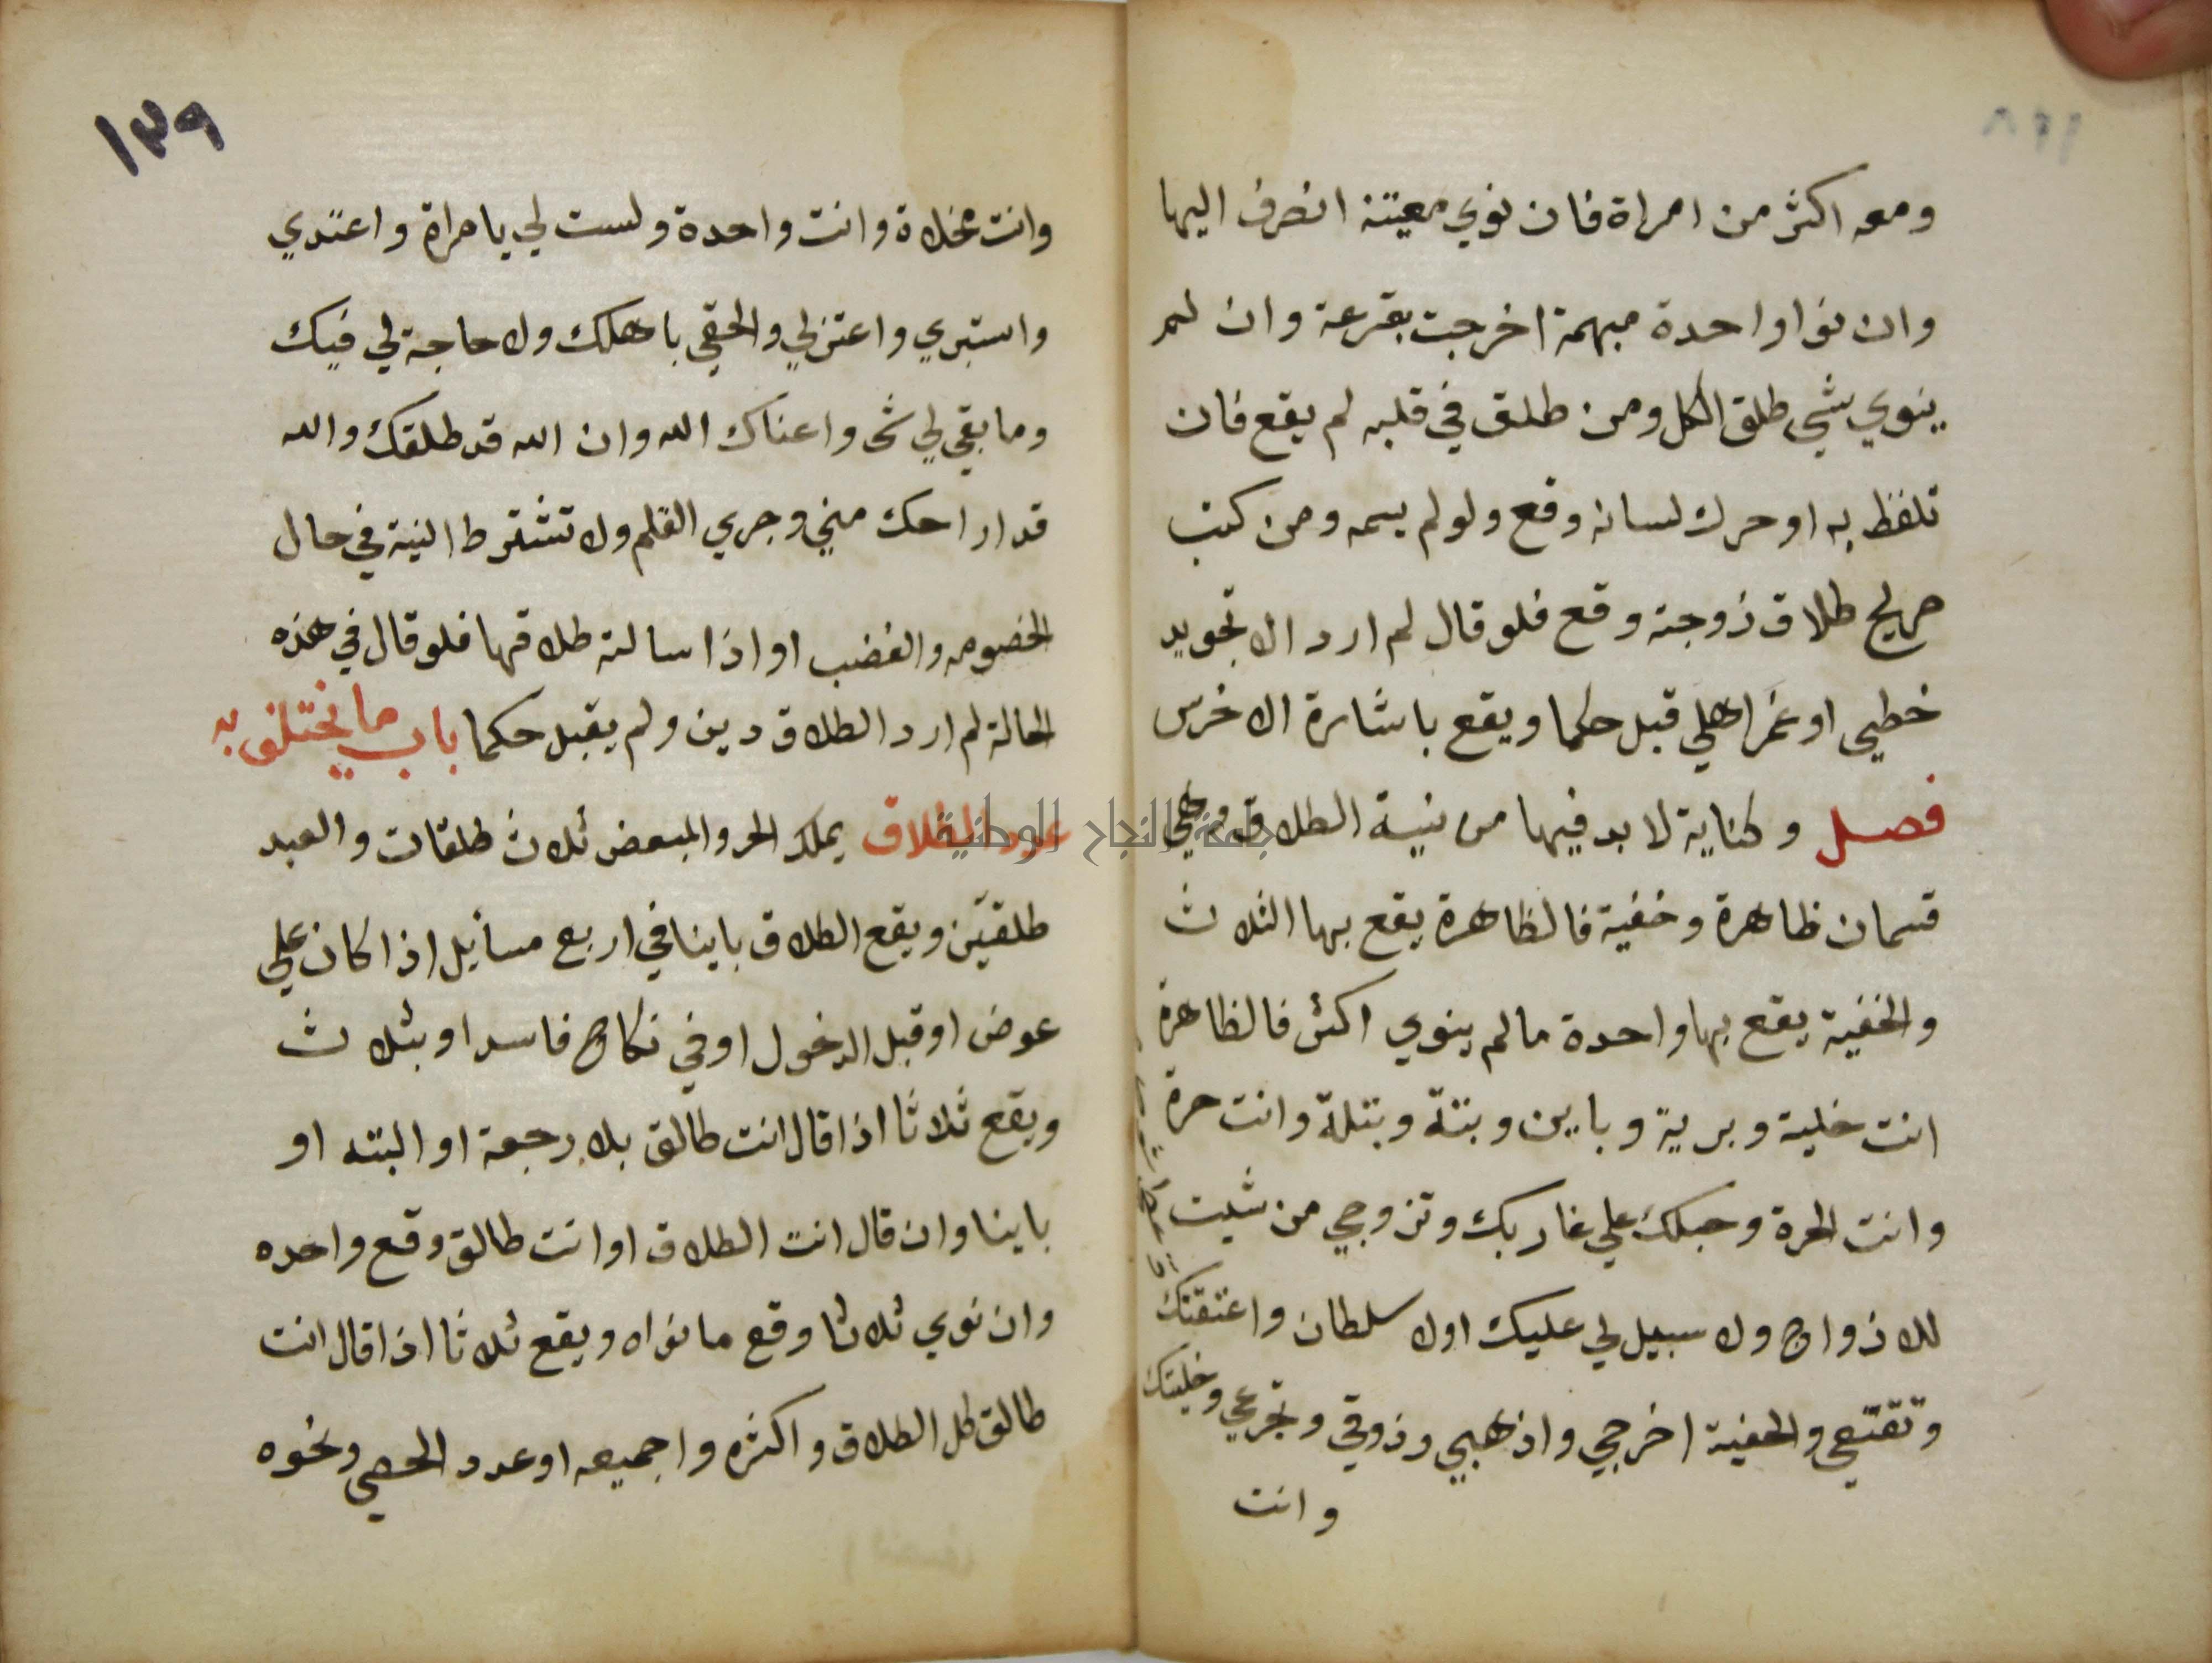 ومعه اكثر من امراة فان نوي معينة انصرف اليها
وان نوا واحدة مبهمة اخرجت بقرعة وان لم
ينوي شي طلق الكل ومن طلق في قلبه لم يقع فان
تلفظ به او حرك لسانه وقع ولو لم يسمعه ومن كتب
صريح طلاق زوجته وقع فلو قال لم ارد الا تجويد
خطيى او غم اهلي قبل حكما ويقع باشارة الاخرس
فصل وكناية لا بد فيها من نية الطلاق وهي
قسمان ظاهرة وخفية فالظاهرة يقع بها الثلاث
والخفية يقع بها واحدة مالم ينوي اكثر فالظاهرة
انت خلية وبرية وباين وبتة وبتلة وانت حرة
وانت الحرة وحبلك علي غاربك وتزوجي من شيت
للازواج ولا سبيل لي عليك اولا سلطان واعتقتك
وتقنعي والخفية اخرجي واذهبي وذوقي وتجرعي وخليتك
وانت
١٣٩
وانت مخلاة وانت واحدة ولست لي يامراة واعتدي
واستبري واعتزلي والحقي باهلك ولا حاجة لي فيك
وما بقي لي شي واعناك الله وان الله قد طلقك والله
قد اراحك مني وجري القلم ولا تشترط النية في حال
الخصومه والغضب او اذا سالته طلاقها فلو قال في هذه
الحالة لم ارد الطلاق دين ولم يقبل حكما باب ما يختلف به
عدد الطلاق يملك الحر والمبعض ثلاث طلقات والعبد
طلقتين ويقع الطلاق باينا في اربع مسايل اذا كان علي
عوض او قبل الدخول او في نكاح فاسد او بثلاث
ويقع ثلاثا اذا قال انت طالق بلا رجعة او البته او
باينا وان قال انت الطلاق او انت طالق وقع واحده
وان نوي ثلاثا وقع ما نواه ويقع ثلاثا اذا قال انت
طالق كل الطلاق واكثره واجميعه او عدد الحصي ونحوه
جامعة النجاح الوطنية